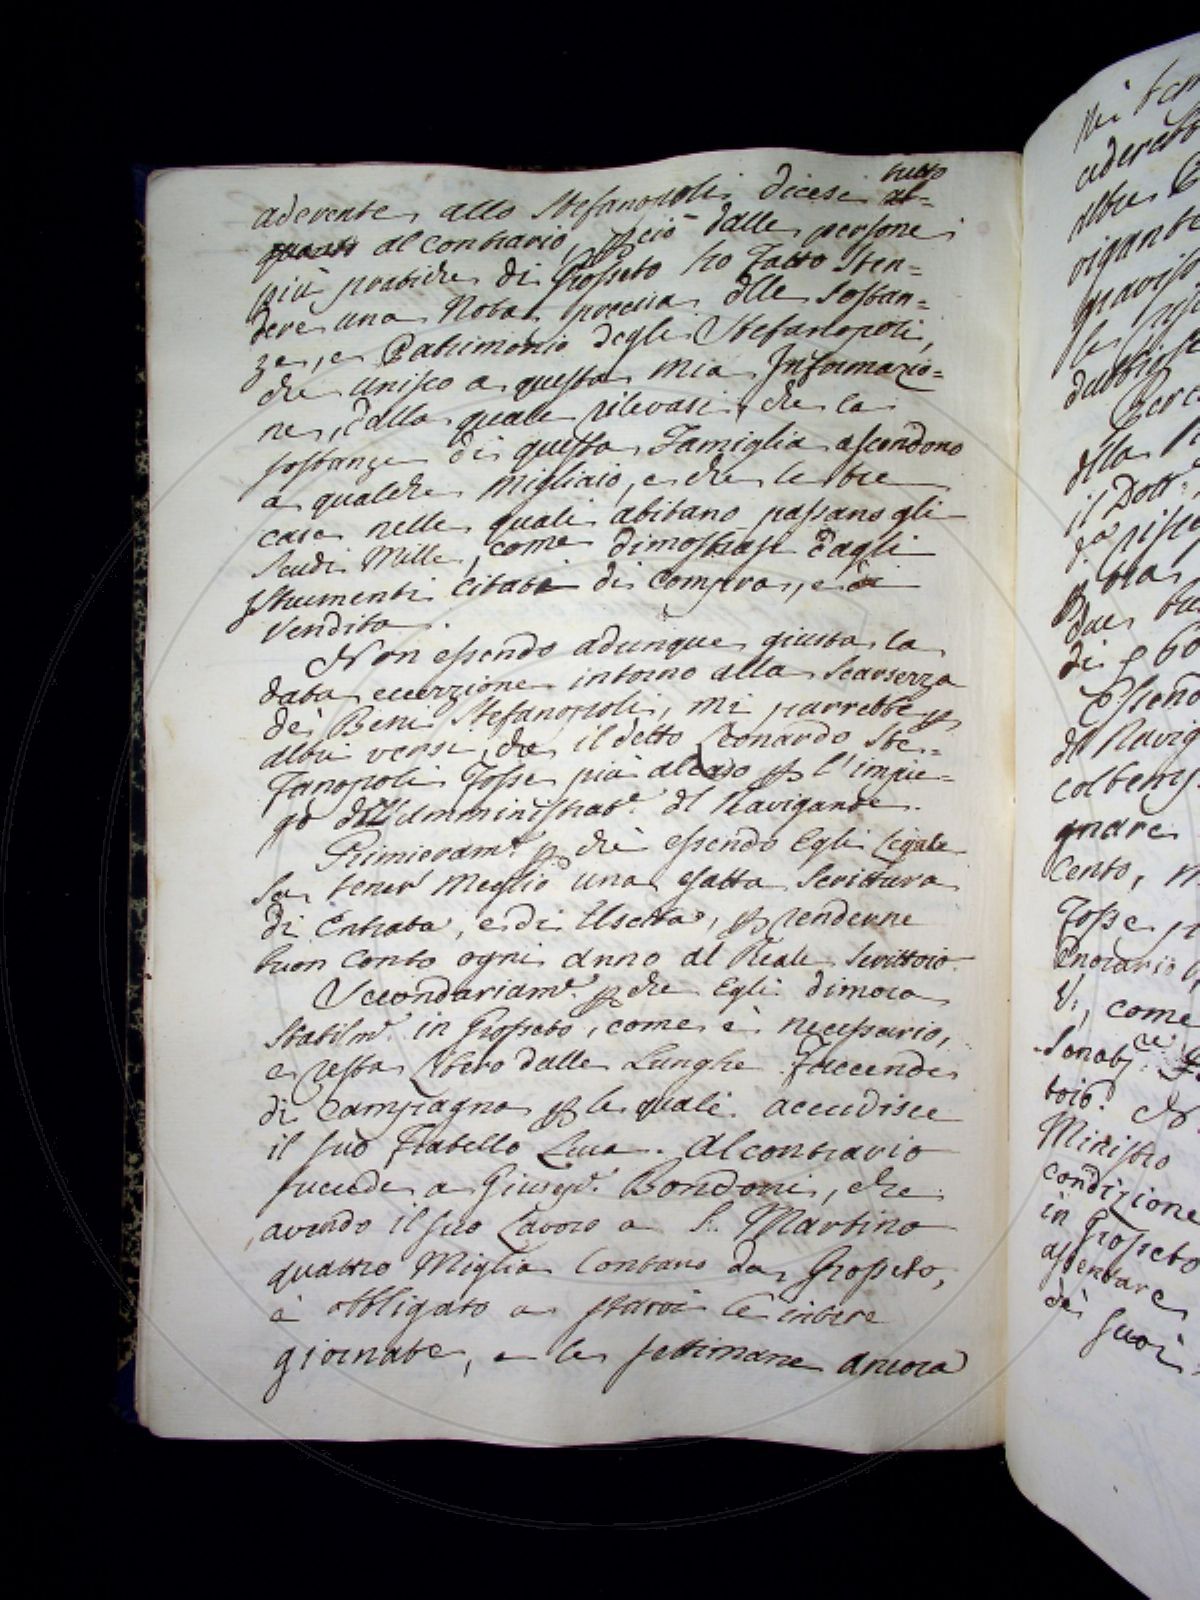 aderente allo Stefanopoli dicesi tutto
al contrario, p ciò dalle persone
più pratiche di Grosseto ho fatto sten=
dere una Nota precisa dlle sostan=
ze, e Patrimonio degli Stefanopoli,
che unisco a questa mia Informazio=
ne, dalla quale rilevasi, che la
sostanze di questa Famiglia ascendono
a qualche migliaio, e che le tre
case nelle quali abitano passano gli
Scudi Mille, come dimostrasi dagli
Istrumenti citati di compra, e di
Vendita.
Non essendo adunque giusta la
data eccezzione intorno alla Scarsezza
dei Beni Stefanopoli, mi parrebbe p
altri versi, che il detto Leonardo Ste=
fanopoli fosse più al caso p l'impie=
go dll'Amministrat.e dl Navigante.
Primieram.e p che essendo Egli Legale
sa tener meglio una esatta Scrittura
di Entrata, e di Uscita, p renderne
buon Conto ogni Anno al Reale Scrittoio.
Secondariam.e p che Egli dimora
stabilm.e in Grosseto, come è necessario,
e resta libero dalle Lunghe faccende
di Campagna p le quali accudisce
il suo Fratello Luca. Al contrario
succede a Giusep.e Bondoni, che
avendo il suo Lavoro a S. Martino
quattro Miglia Lontano da Grosseto,
è obbligato a starvi le intere
giornate, e le settimane ancora
in Grosseto
Ministro
condizione
come
Cento,
suoi